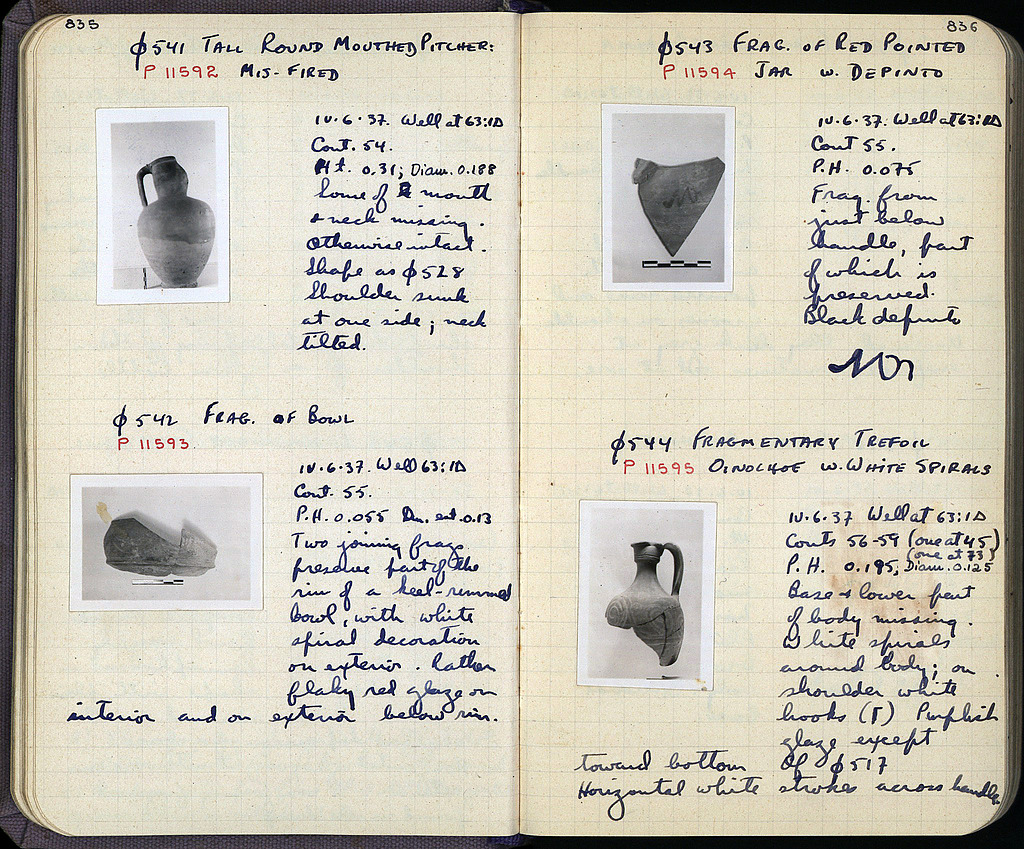 835
φ541 TALL ROUND MOUTHED PITCHER:
P 11592 MIS-FIRED
IV.6.37. Well at 63:ΙΔ
Cont. 54.
Ht. 0.31; Diam. 0.188
Some of mouth
+ neck missing.
Otherwise intact.
Shape as φ528
Shoulder sunk
at one side; neck
tilted.
φ542 FRAG. OF BOWL
P 11593
IV.6.37. Well 63:ΙΔ
Cont. 55.
P.H. 0.055 Dm. est. 0.13
Two joining frags
preserve part of the
rim of a keel-rimmed
bowl, with white
spiral decoration
on exterior. Rather
flaky red glaze on
interior and on exterior below rim.
836
φ543 FRAG. OF RED POINTED
P 11594 JAR W. DEPINTO
IV.6.37. Well at 63:ΙΔ
Cont 55.
P.H. 0.075
Frag. from
just below
handle, part
of which is
preserved.
Black depinto
φ544 FRAGMENTARY TREFOIL
P 11595 OINOCHOE W. WHITE SPIRALS
IV.6.37 Well at 63:ΙΔ
Conts 56-59 (one at 45)
(one at 73)
P.H. 0.195; Diam. 0.125
Base + lower part
of body missing.
White spirals
around body; on
shoulder white
hooks (Γ) Purplish
glaze except
toward bottom Cf φ517
Horizontal white strokes across handle.